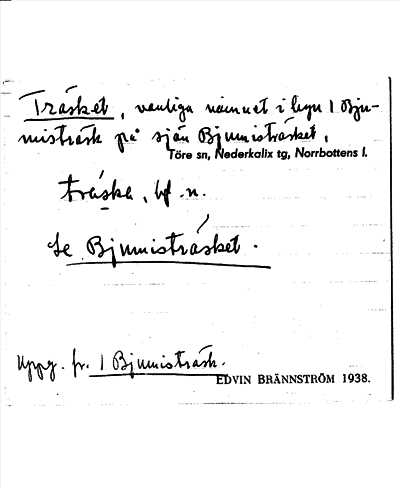 Träsket, vanliga namnet i byn 1 Bju-
misträsk på sjön Bjumisträsket,
Töre sn, Nederkalix tg, Norrbottens l.
träska, bf. n.
Se Bjumisträsket.
Uppg. fr. 1 Bjumisträsk.
EDVIN BRÄNNSTRÖM 1938.